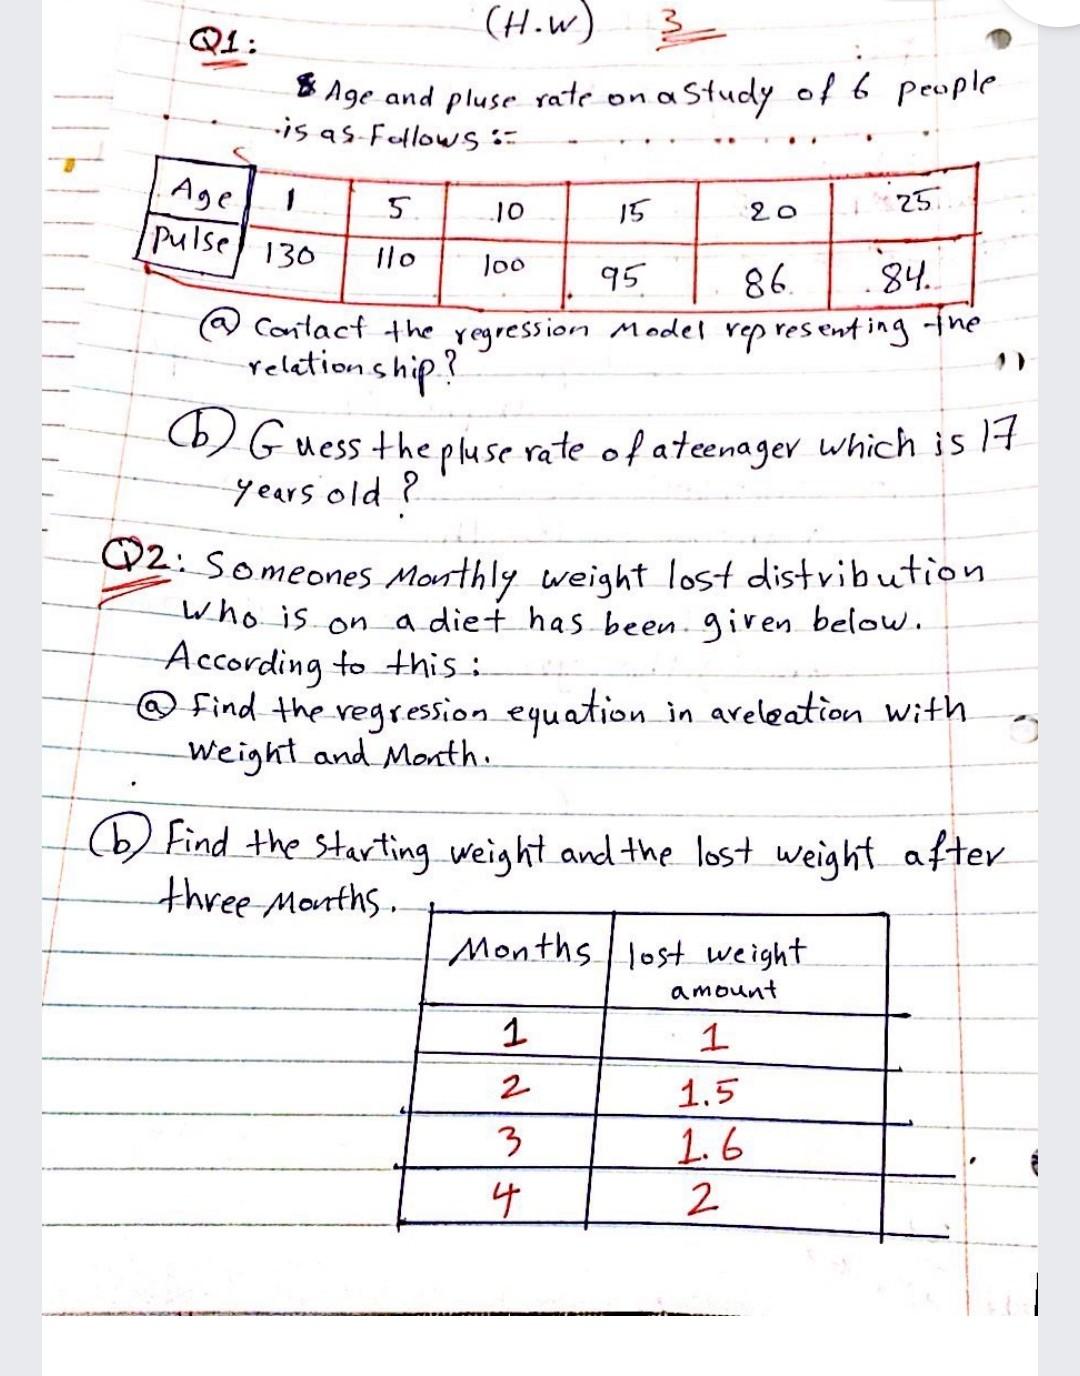 (H.W) 3
Q1:
Age and pluse rate on a study of 6 people
is as Follows :-
Age 1 5 10 15 20 25
Pulse 130 110 100 95 86 84
(a) Contact the regression Model representing the
relationship?
(b) Guess the pluse rate of a teenager which is 17
years old ?
Q2: Someones Monthly weight lost distribution
who is on a diet has been given below.
According to this :
(a) Find the regression equation in a releation with
Weight and Month.
(b) Find the Starting weight and the lost weight after
three Months.
Months lost weight
amount
1 1
2 1.5
3 1.6
4 2